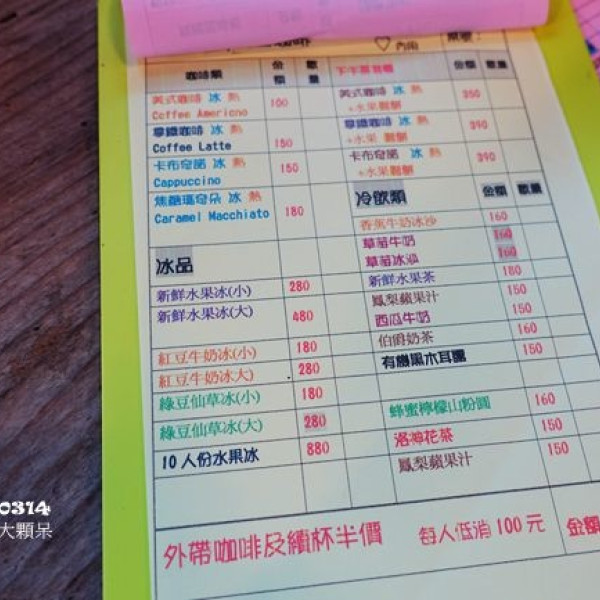 咖啡類 金額 數量
美式咖啡 冰 熱 100
Coffee Americno
拿鐵咖啡 冰 熱
Coffee Latte 150
卡布奇諾 冰 熱 150
Cappuccino
焦糖瑪奇朵 冰 熱
Caramel Macchiato 180
冰品
新鮮水果冰(小) 280
新鮮水果冰(大) 480
紅豆牛奶冰(小) 180
紅豆牛奶冰大) 280
綠豆仙草冰(小) 180
綠豆仙草冰(大) 280
10人份水果冰 880
內用
下午茶套餐 金額 數量
美式咖啡 冰 熱 350
+水果 鬆餅
拿鐵咖啡 冰 熱 390
+水果 鬆餅
卡布奇諾 冰 熱 390
+水果 鬆餅
冷飲類 金額 數量
香蕉牛奶冰沙 160
草莓牛奶 160
草莓冰沙 160
新鮮水果茶 180
鳳梨蘋果汁 150
西瓜牛奶 150
伯爵奶茶 160
有機黑木耳露 150
蜂蜜檸檬山粉圓 160
洛神花茶 150
鳳梨蘋果汁 150
外帶咖啡及續杯半價 每人低消100元 金額
0314
大顆呆